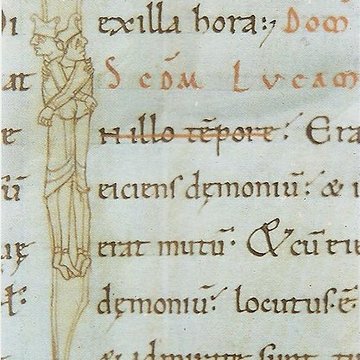 exilla hora:, Dom
at Scd̄m Lucam
N illo tēpore. Era
eiciens dęmoniū. & i
erat mutū. & cū eie
dęmoniū. locutus. ē.